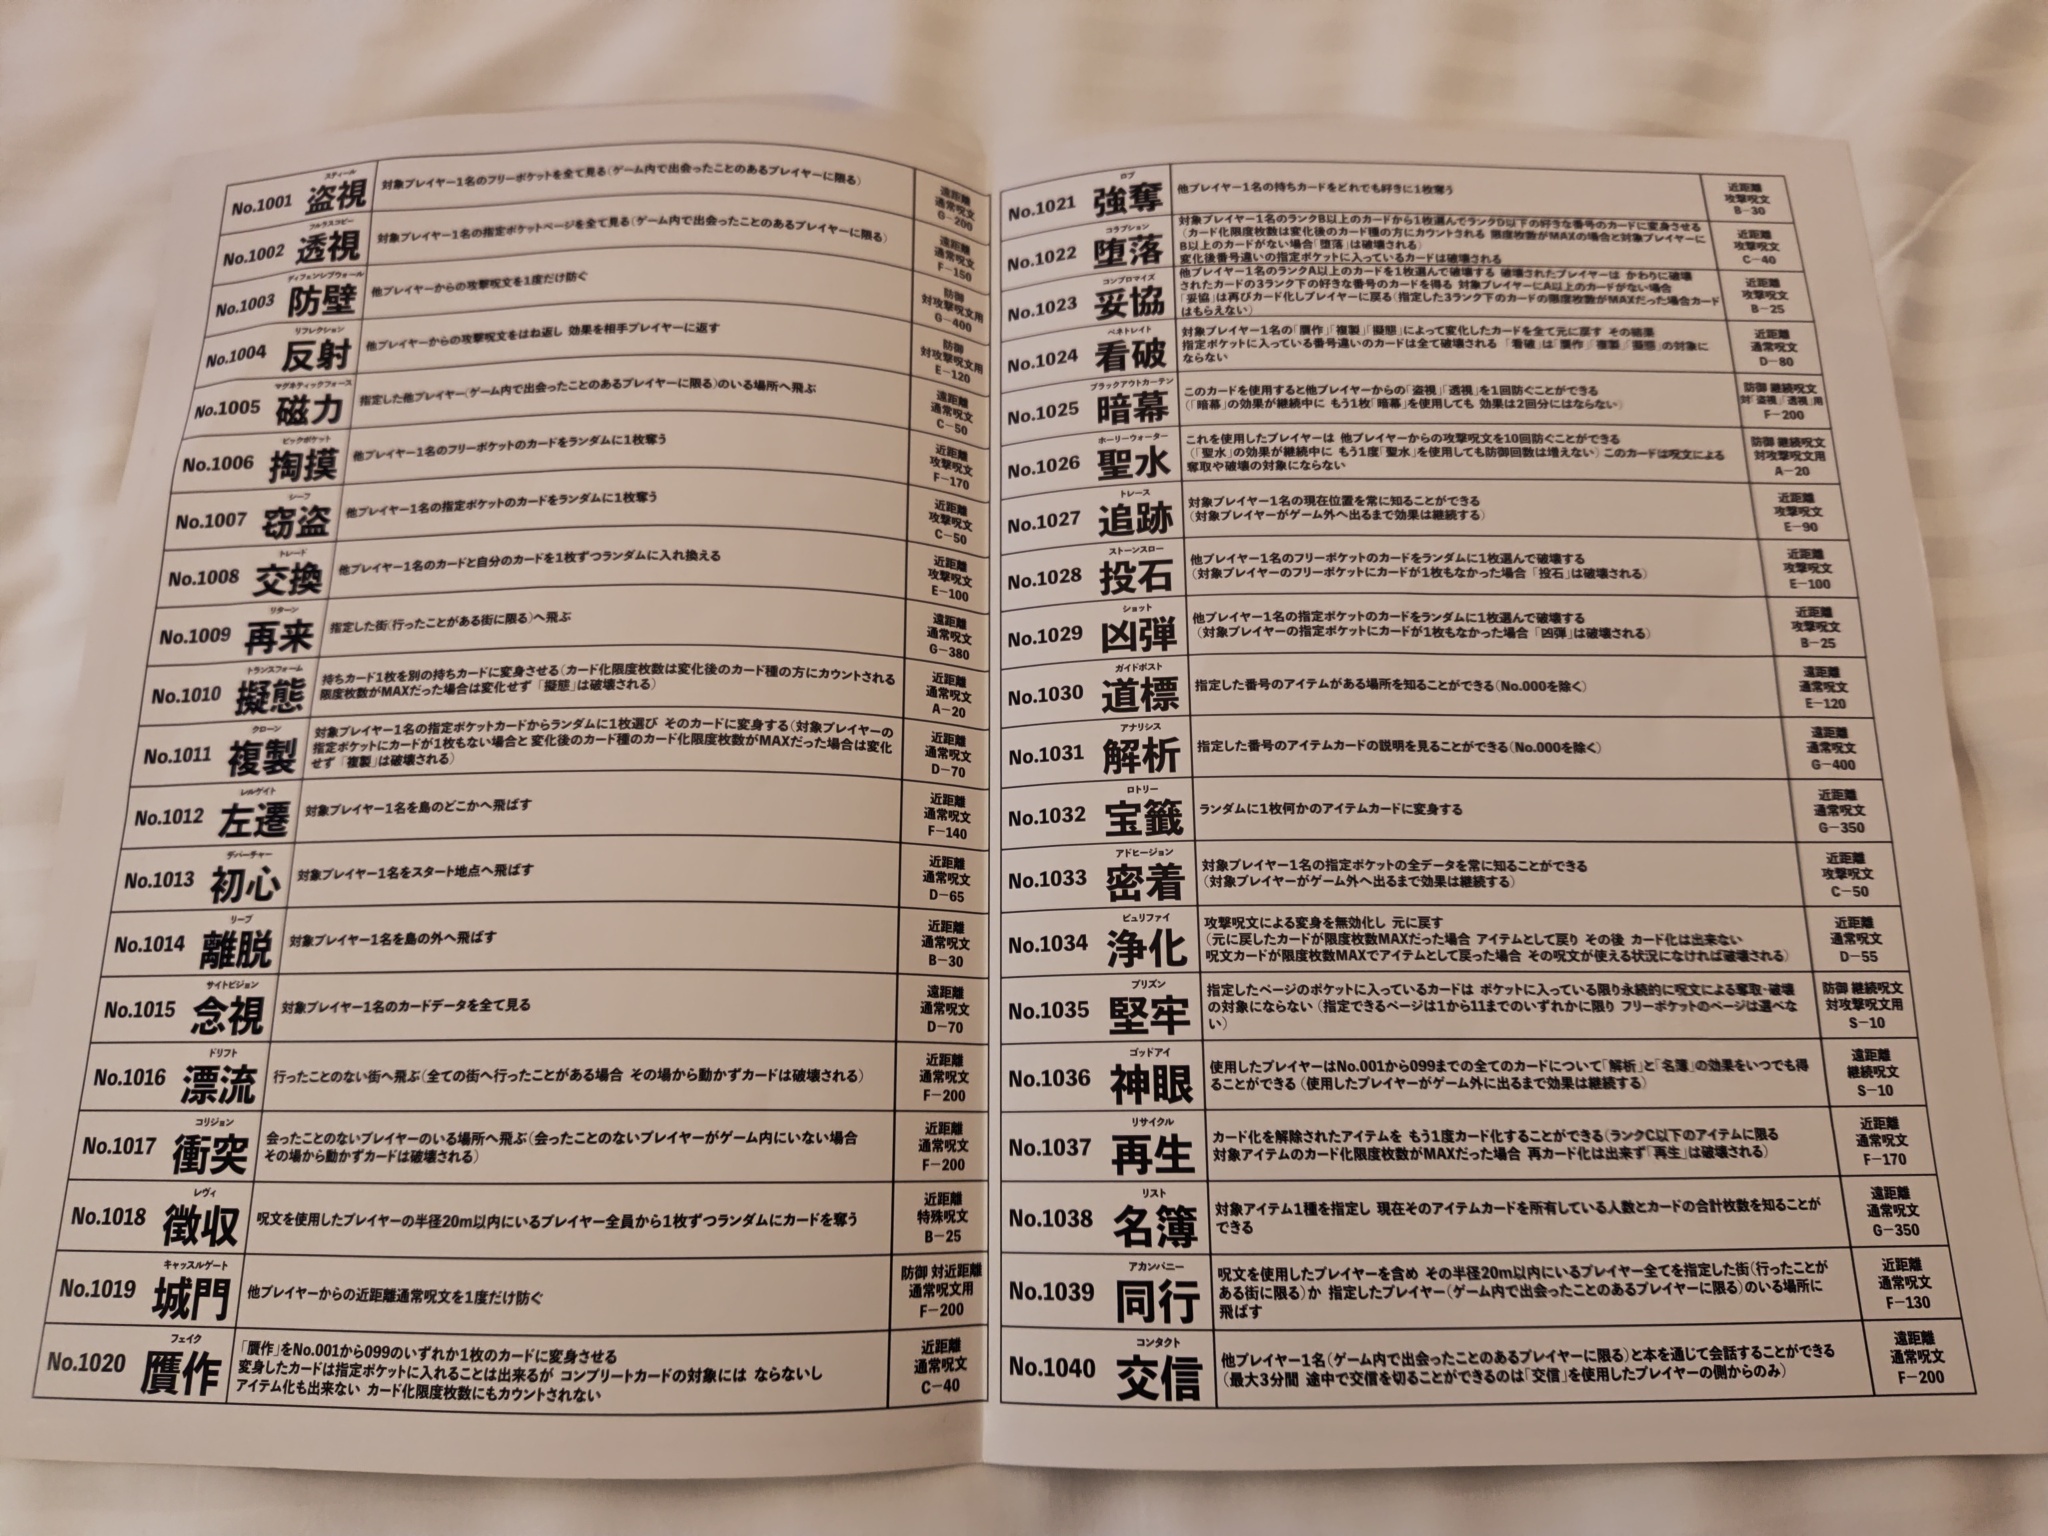 スティール
No.1001 盗視 対象プレイヤー1名のフリーポケットを全て見る(ゲーム内で出会ったことのあるプレイヤーに限る)
遠距離
通常呪文
G-200
フルラスコピー
No.1002 透視 対象プレイヤー1名の指定ポケットページを全て見る(ゲーム内で出会ったことのあるプレイヤーに限る)
遠距離
通常呪文
F-150
ディフェンシブウォール
No.1003 防壁 他プレイヤーからの攻撃呪文を1度だけ防ぐ
防御
対攻撃呪文用
G-400
リフレクション
No.1004 反射 他プレイヤーからの攻撃呪文をはね返し 効果を相手プレイヤーに返す
防御
対攻撃呪文用
E-120
マグネティックフォース
No.1005 磁力 指定した他プレイヤー(ゲーム内で出会ったことのあるプレイヤーに限る)のいる場所へ飛ぶ
遠距離
通常呪文
C-50
ピックポケット
No.1006 掏摸 他プレイヤー1名のフリーポケットのカードをランダムに1枚奪う
近距離
攻撃呪文
F-170
シーフ
No.1007 窃盗 他プレイヤー1名の指定ポケットのカードをランダムに1枚奪う
近距離
攻撃呪文
C-50
トレード
No.1008 交換 他プレイヤー1名のカードと自分のカードを1枚ずつランダムに入れ換える
近距離
攻撃呪文
E-100
リターン
No.1009 再来 指定した街(行ったことがある街に限る)へ飛ぶ
遠距離
通常呪文
G-380
トランスフォーム
No.1010 擬態 持ちカード1枚を別の持ちカードに変身させる(カード化限度枚数は変化後のカード種の方にカウントされる
限度枚数がMAXだった場合は変化せず 「擬態」は破壊される)
近距離
通常呪文
A-20
クローン
No.1011 複製 対象プレイヤー1名の指定ポケットカードからランダムに1枚選び そのカードに変身する(対象プレイヤーの
指定ポケットにカードが1枚もない場合と変化後のカード種のカード化限度枚数がMAXだった場合は変化
せず 「複製」は破壊される)
近距離
通常呪文
D-70
レルゲイト
No.1012 左遷 対象プレイヤー1名を島のどこかへ飛ばす
近距離
通常呪文
F-140
デパーチャー
No.1013 初心 対象プレイヤー1名をスタート地点へ飛ばす
近距離
通常呪文
D-65
リーブ
No.1014 離脱 対象プレイヤー1名を島の外へ飛ばす
近距離
通常呪文
B-30
サイトビジョン
No.1015 念視 対象プレイヤー1名のカードデータを全て見る
遠距離
通常呪文
D-70
ドリフト
No.1016 漂流 行ったことのない街へ飛ぶ(全ての街へ行ったことがある場合 その場から動かずカードは破壊される)
近距離
通常呪文
F-200
コリジョン
No.1017 衝突 会ったことのないプレイヤーのいる場所へ飛ぶ(会ったことのないプレイヤーがゲーム内にいない場合
その場から動かずカードは破壊される)
近距離
通常呪文
F-200
レヴィ
No.1018 徴収 呪文を使用したプレイヤーの半径20m以内にいるプレイヤー全員から1枚ずつランダムにカードを奪う
近距離
特殊呪文
B-25
キャッスルゲート
No.1019 城門 他プレイヤーからの近距離通常呪文を1度だけ防ぐ
防御 対近距離
通常呪文用
F-200
フェイク
No.1020 贋作 「贋作」をNo.001から099のいずれか1枚のカードに変身させる
変身したカードは指定ポケットに入れることは出来るが コンプリートカードの対象には ならないし
アイテム化も出来ない カード化限度枚数にもカウントされない
近距離
通常呪文
C-40
ロブ
No.1021 強奪 他プレイヤー1名の持ちカードをどれでも好きに1枚奪う
近距離
攻撃呪文
B-30
コラプション
No.1022 堕落 対象プレイヤー1名のランクB以上のカードから1枚選んでランクD以下の好きな番号のカードに変身させる
(カード化限度枚数は変化後のカード種の方にカウントされる 限度枚数がMAXの場合と対象プレイヤーに
B以上のカードがない場合「堕落」は破壊される)
変化後番号違いの指定ポケットに入っているカードは破壊される
近距離
攻撃呪文
C-40
コンプロマイズ
No.1023 妥協 他プレイヤー1名のランクA以上のカードを1枚選んで破壊する 破壊されたプレイヤーは かわりに破壊
されたカードの3ランク下の好きな番号のカードを得る 対象プレイヤーにA以上のカードがない場合
「妥協」は再びカード化しプレイヤーに戻る(指定した3ランク下のカードの限度枚数がMAXだった場合カード
はもらえない)
近距離
攻撃呪文
B-25
ペネトレイト
No.1024 看破 対象プレイヤー1名の「贋作」「複製」「擬態」によって変化したカードを全て元に戻す その結果
指定ポケットに入っている番号違いのカードは全て破壊される 「看破」は「贋作」「複製」「擬態」の対象に
ならない
近距離
通常呪文
D-80
ブラックアウトカーテン
No.1025 暗幕 このカードを使用すると他プレイヤーからの「盗視」「透視」を1回防ぐことができる
(「暗幕」の効果が継続中に もう1枚「暗幕」を使用しても 効果は2回分にはならない)
防御 継続呪文
対「盗視」「透視」用
F-200
ホーリーウォーター
No.1026 聖水 これを使用したプレイヤーは 他プレイヤーからの攻撃呪文を10回防ぐことができる
(「聖水」の効果が継続中に もう1度「聖水」を使用しても防御回数は増えない) このカードは呪文による
奪取や破壊の対象にならない
防御 継続呪文
対攻撃呪文用
A-20
トレース
No.1027 追跡 対象プレイヤー1名の現在位置を常に知ることができる
(対象プレイヤーがゲーム外へ出るまで効果は継続する)
近距離
攻撃呪文
E-90
ストーンスロー
No.1028 投石 他プレイヤー1名のフリーポケットのカードをランダムに1枚選んで破壊する
(対象プレイヤーのフリーポケットにカードが1枚もなかった場合 「投石」は破壊される)
近距離
攻撃呪文
E-100
ショット
No.1029 凶弾 他プレイヤー1名の指定ポケットのカードをランダムに1枚選んで破壊する
(対象プレイヤーの指定ポケットにカードが1枚もなかった場合 「凶弾」は破壊される)
近距離
攻撃呪文
B-25
ガイドポスト
No.1030 道標 指定した番号のアイテムがある場所を知ることができる(No.000を除く)
遠距離
通常呪文
E-120
アナリシス
No.1031 解析 指定した番号のアイテムカードの説明を見ることができる(No.000を除く)
遠距離
通常呪文
G-400
ロトリー
No.1032 宝籤 ランダムに1枚何かのアイテムカードに変身する
近距離
通常呪文
G-350
アドヒージョン
No.1033 密着 対象プレイヤー1名の指定ポケットの全データを常に知ることができる
(対象プレイヤーがゲーム外へ出るまで効果は継続する)
近距離
攻撃呪文
C-50
ピュリファイ
No.1034 浄化 攻撃呪文による変身を無効化し 元に戻す
(元に戻したカードが限度枚数MAXだった場合 アイテムとして戻り その後 カード化は出来ない
呪文カードが限度枚数MAXでアイテムとして戻った場合 その呪文が使える状況になければ破壊される)
近距離
通常呪文
D-55
プリズン
No.1035 堅牢 指定したページのポケットに入っているカードは ポケットに入っている限り永続的に呪文による奪取・破壊
の対象にならない (指定できるページは1から11までのいずれかに限り フリーポケットのページは選べな
い)
防御 継続呪文
対攻撃呪文用
S-10
ゴッドアイ
No.1036 神眼 使用したプレイヤーはNo.001から099までの全てのカードについて「解析」と「名簿」の効果をいつでも得
ることができる (使用したプレイヤーがゲーム外に出るまで効果は継続する)
遠距離
継続呪文
S-10
リサイクル
No.1037 再生 カード化を解除されたアイテムを もう1度カード化することができる(ランクC以下のアイテムに限る
対象アイテムのカード化限度枚数がMAXだった場合 再カード化は出来ず「再生」は破壊される)
近距離
通常呪文
F-170
リスト
No.1038 名簿 対象アイテム1種を指定し 現在そのアイテムカードを所有している人数とカードの合計枚数を知ることが
できる
遠距離
通常呪文
G-350
アカンパニー
No.1039 同行 呪文を使用したプレイヤーを含め その半径20m以内にいるプレイヤー全てを指定した街(行ったことが
ある街に限る)か 指定したプレイヤー(ゲーム内で出会ったことのあるプレイヤーに限る)のいる場所に
飛ばす
近距離
通常呪文
F-130
コンタクト
No.1040 交信 他プレイヤー1名(ゲーム内で出会ったことのあるプレイヤーに限る)と本を通じて会話することができる
(最大3分間 途中で交信を切ることができるのは「交信」を使用したプレイヤーの側からのみ)
遠距離
通常呪文
F-200